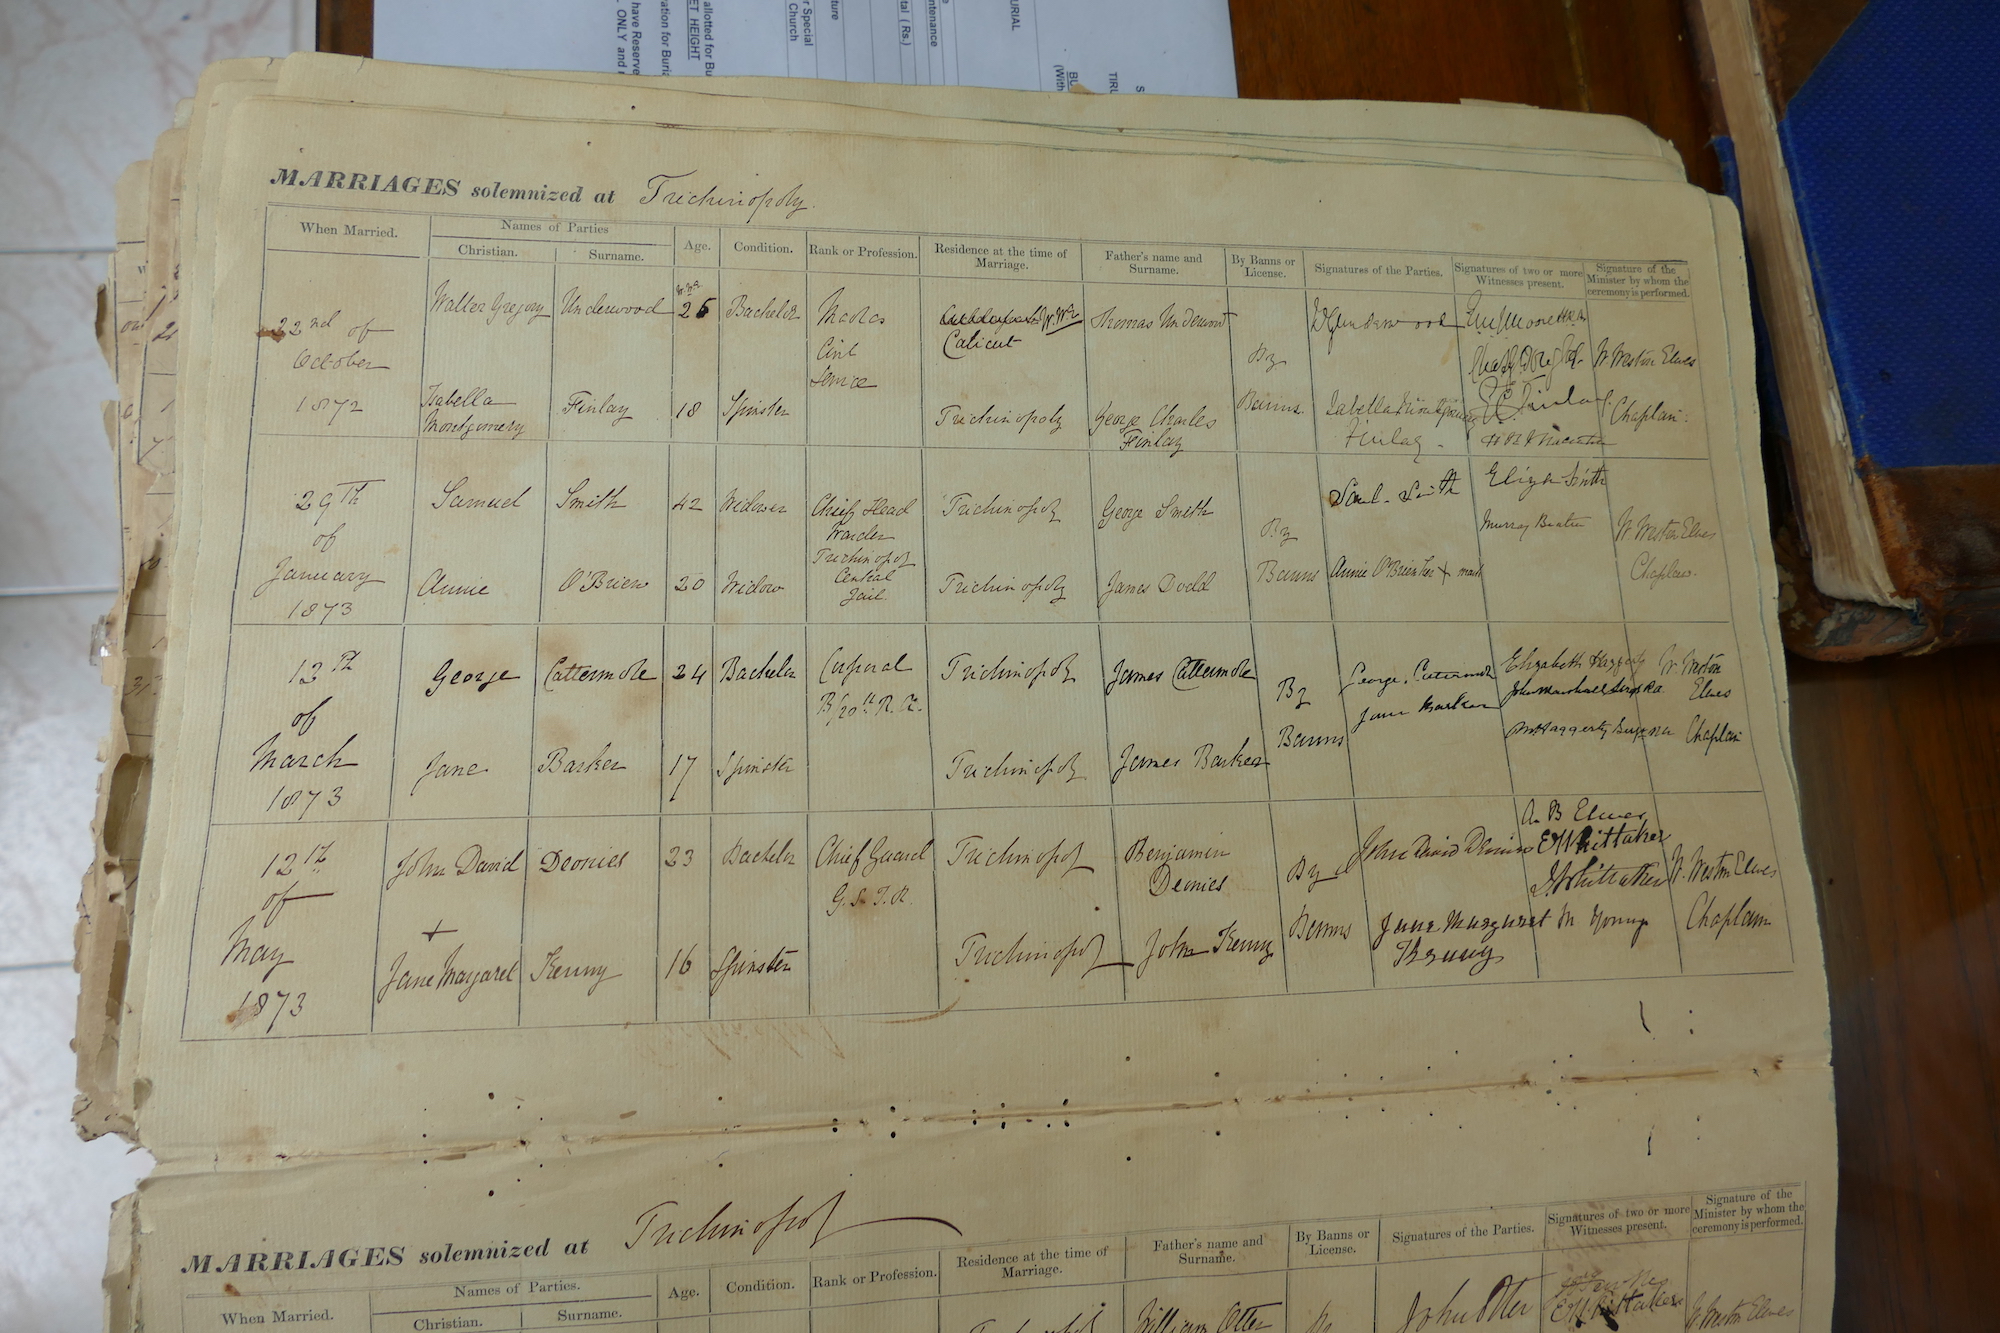 URIAL
ntenance
tal (Rs.)
r Special
Church
allotted for Bu
ET HEIGHT
ration for Buria
have Reserve
ONLY and
TIRU
(With
MARRIAGES solemnized at Trichinopoly.
When Married.
Names of Parties
Christian.
Surname.
Age.
Condition.
Rank or Profession.
Residence at the time of
Marriage.
Father's name and
Surname.
By Banns or
License.
Signatures of the Parties.
Signatures of two or more
Witnesses present.
Signature of the
Minister by whom the
ceremony is performed.
22nd of
October
1872
Walter Gregory Underwood 25 Bachelor
Madras
Civil
Service
Calicut
Thomas Underwood
Isabella
Montgomery
Finlay 18 Spinster
Trichinopoly
George Charles
Finlay
By
Banns.
Finlay
W Weston Elwes
Chaplain.
29th
of
January
1873
Samuel Smith 42 Widower
Chief Head
Warder
Trichinopoly
Central
Jail.
Trichinopoly
George Smith
Annie O'Brien 20 Widow
Trichinopoly
James Dodd
By
Banns
Saml. Smith
Annie O'Brien her + mark
Eliza Smith
Murray
W Weston Elwes
Chaplain.
13th
of
March
1873
George Cattermole 24 Bachelor
Corporal
B/20th R.A.
Trichinopoly
James Cattermole
Jane Barker 17 Spinster
Trichinopoly
James Barker
By
Banns
George Cattermole
Jane Barker
Elizabeth Haggerty
John Marshall Sergt RA
Haggerty
W. Weston
Elwes
Chaplain
12th
of
May
1873
John David Deonies 23 Bachelor
Chief Guard
G. S. I. R.
Trichinopoly
Benjamin
Deonies
+
Jane Margaret Kenny 16 Spinster
Trichinopoly
John Kenny
By
Banns
John David
Jane Margaret
Kenny
A. B Elwes
E Whittaker
J Whittaker
M Young
W. Weston Elwes
Chaplain
MARRIAGES solemnized at Trichinopoly
When Married.
Names of Parties.
Christian.
Surname.
Age.
Condition.
Rank or Profession.
Residence at the time of
Marriage.
Father's name and
Surname.
By Banns or
License.
Signatures of the Parties.
Signatures of two or more
Witnesses present.
Signature of the
Minister by whom the
ceremony is performed.
William Otter
John Otter
E Whittaker
W Weston Elwes